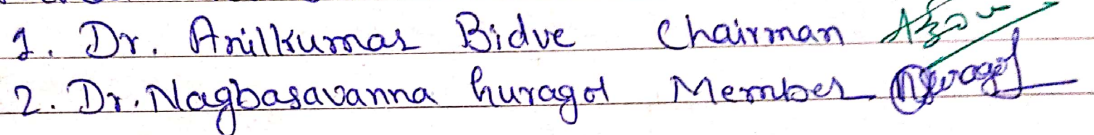 1. Dr. Anilkumar Bidve Chairman
2. Dr. Nagbasavanna huragol Member